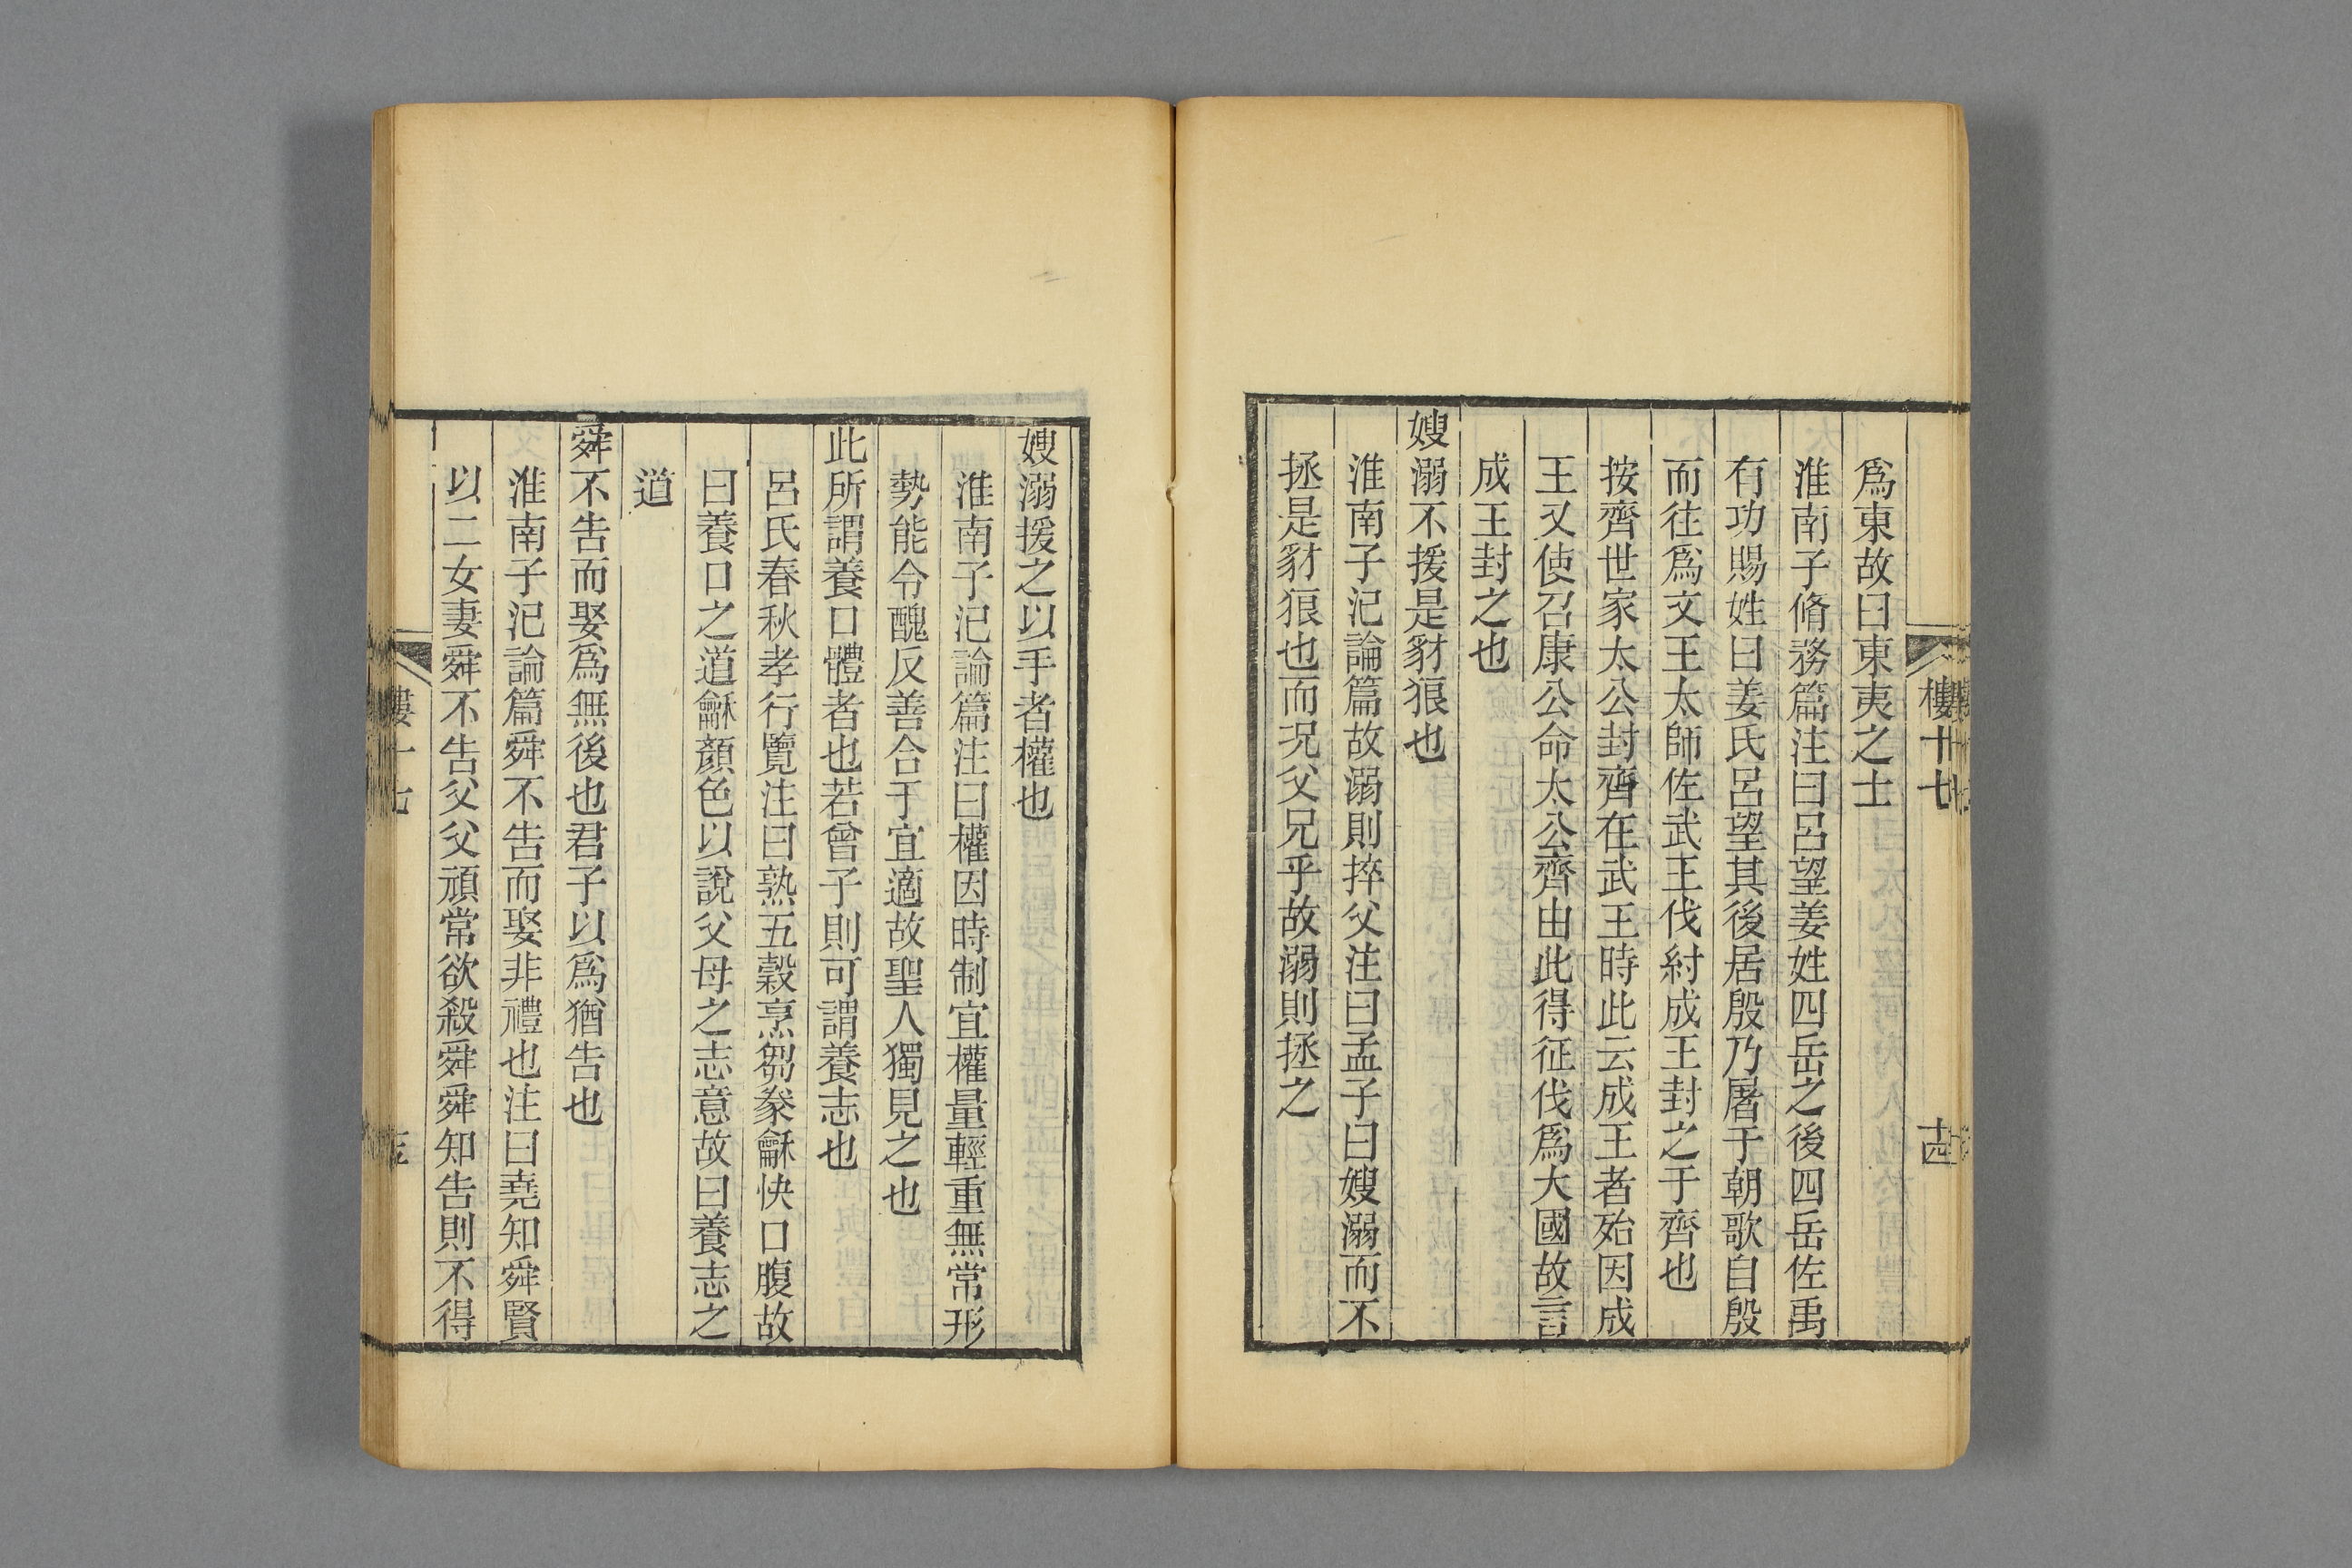 爲東故曰東夷之士
淮南子脩務篇注曰呂望姜姓四岳之後四岳佐禹
有功賜姓曰姜氏呂望其後居殷乃屠于朝歌自殷
而往爲文王太師佐武王伐紂成王封之于齊也
按齊世家太公封齊在武王時此云成王者殆因成
王又使召康公命太公齊由此得征伐爲大國故言
成王封之也
嫂溺不援是豺狼也
淮南子汜論篇故溺則捽父注曰孟子曰嫂溺而不
拯是豺狼也而況父兄乎故溺則拯之
十四
嫂溺援之以手者權也
淮南子汜論篇注曰權因時制宜權量輕重無常形
勢能令醜反善合于宜適故聖人獨見之也
此所謂養口體者也若曾子則可謂養志也
呂氏春秋孝行覽注曰熟五穀烹芻豢龢快口腹故
曰養口之道龢顏色以說父母之志意故曰養志之
道
舜不告而娶爲無後也君子以爲猶告也
淮南子汜論篇舜不告而娶非禮也注曰堯知舜賢
以二女妻舜不告父父頑常欲殺舜舜知告則不得